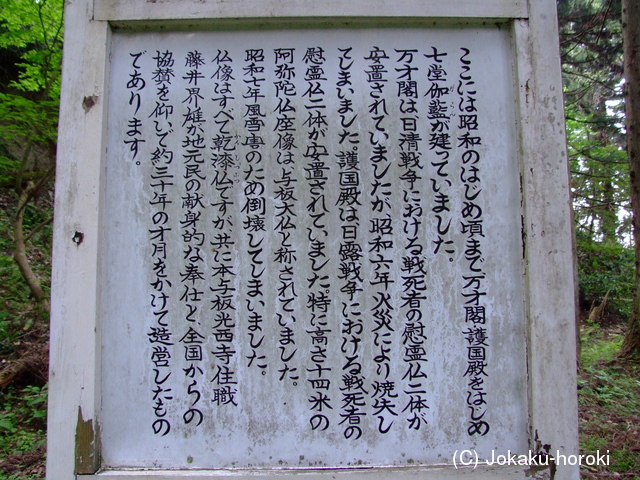 ここには昭和のはじめ頃まで万才閣、護国殿をはじめ
七堂伽藍が建っていました。
がらん
万才閣は日清戦争における戦死者の慰霊仏二体が
安置されていましたが、昭和六年火災により焼失し
てしまいました。護国殿は日露戦争における戦死者の
慰霊仏二体が安置されていました。特に高さ十四米の
阿弥陀仏座像は与板大仏と称されていました。
昭和七年風雪害のため倒壊してしまいました。
仏像はすべて乾漆仏ですが、共に本与板光西寺住職
藤井界雄が地元民の献身的な奉仕と、全国からの
協賛を仰いで約三十年の才月をかけて造営したもの
であります。
(C) Jokaku-horoki